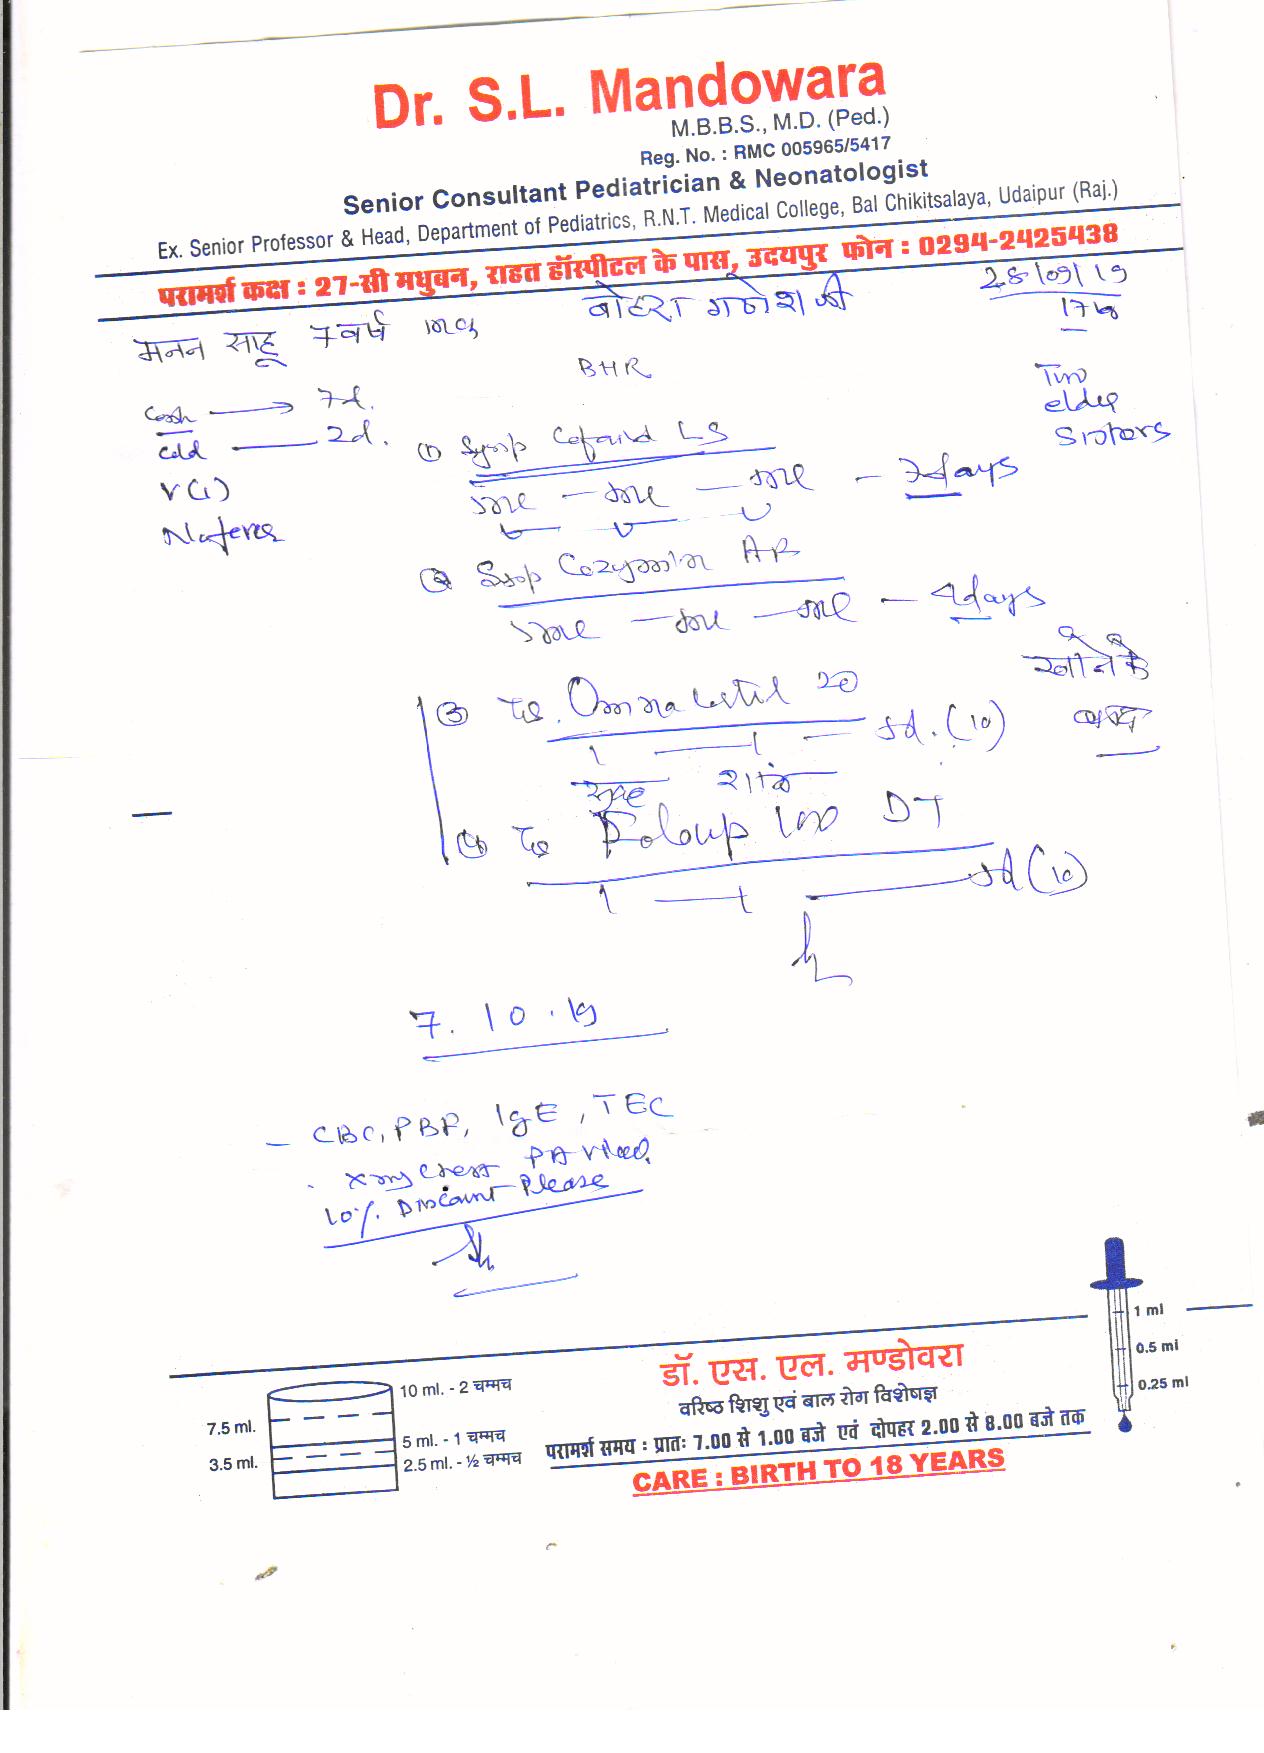 Dr. S.L. Mandowara
M.B.B.S., M.D. (Ped.)
Reg. No. : RMC 005965/5417
Senior Consultant Pediatrician & Neonatologist
Ex. Senior Professor & Head, Department of Pediatrics, R.N.T. Medical College, Bal Chikitsalaya, Udaipur (Raj.)
परामर्श कक्ष : 27-सी मधुबन, राहत हॉस्पीटल के पास, उदयपुर फोन : 0294-2425438
28/09/19
बोहरा गणेश जी
मनन साहू 7 वर्ष
BHR
Two
elder
Sisters
7d.
Cold 2d.
V(1)
No fever
(1) Syrup LS
5ml - 5ml - 5ml - 7days
(2) Syrup AR
5ml - 5ml - 5ml - 4days
खाने के
बाद
(3) Omnacortil 20
1 - 1 - 5d. (10)
सुबह शाम
(4) DT
1 - 1 5d (10)
7. 10. 19
- CBC, PBF, IgE, TEC
. Xray Chest PA View.
10% Discount Please
1 ml
0.5 ml
0.25 ml
10 ml. - 2 चम्मच
7.5 ml.
5 ml. - 1 चम्मच
3.5 ml.
2.5 ml. - ½ चम्मच
डॉ. एस. एल. मण्डोवरा
वरिष्ठ शिशु एवं बाल रोग विशेषज्ञ
परामर्श समय : प्रातः 7.00 से 1.00 बजे एवं दोपहर 2.00 से 8.00 बजे तक
CARE : BIRTH TO 18 YEARS